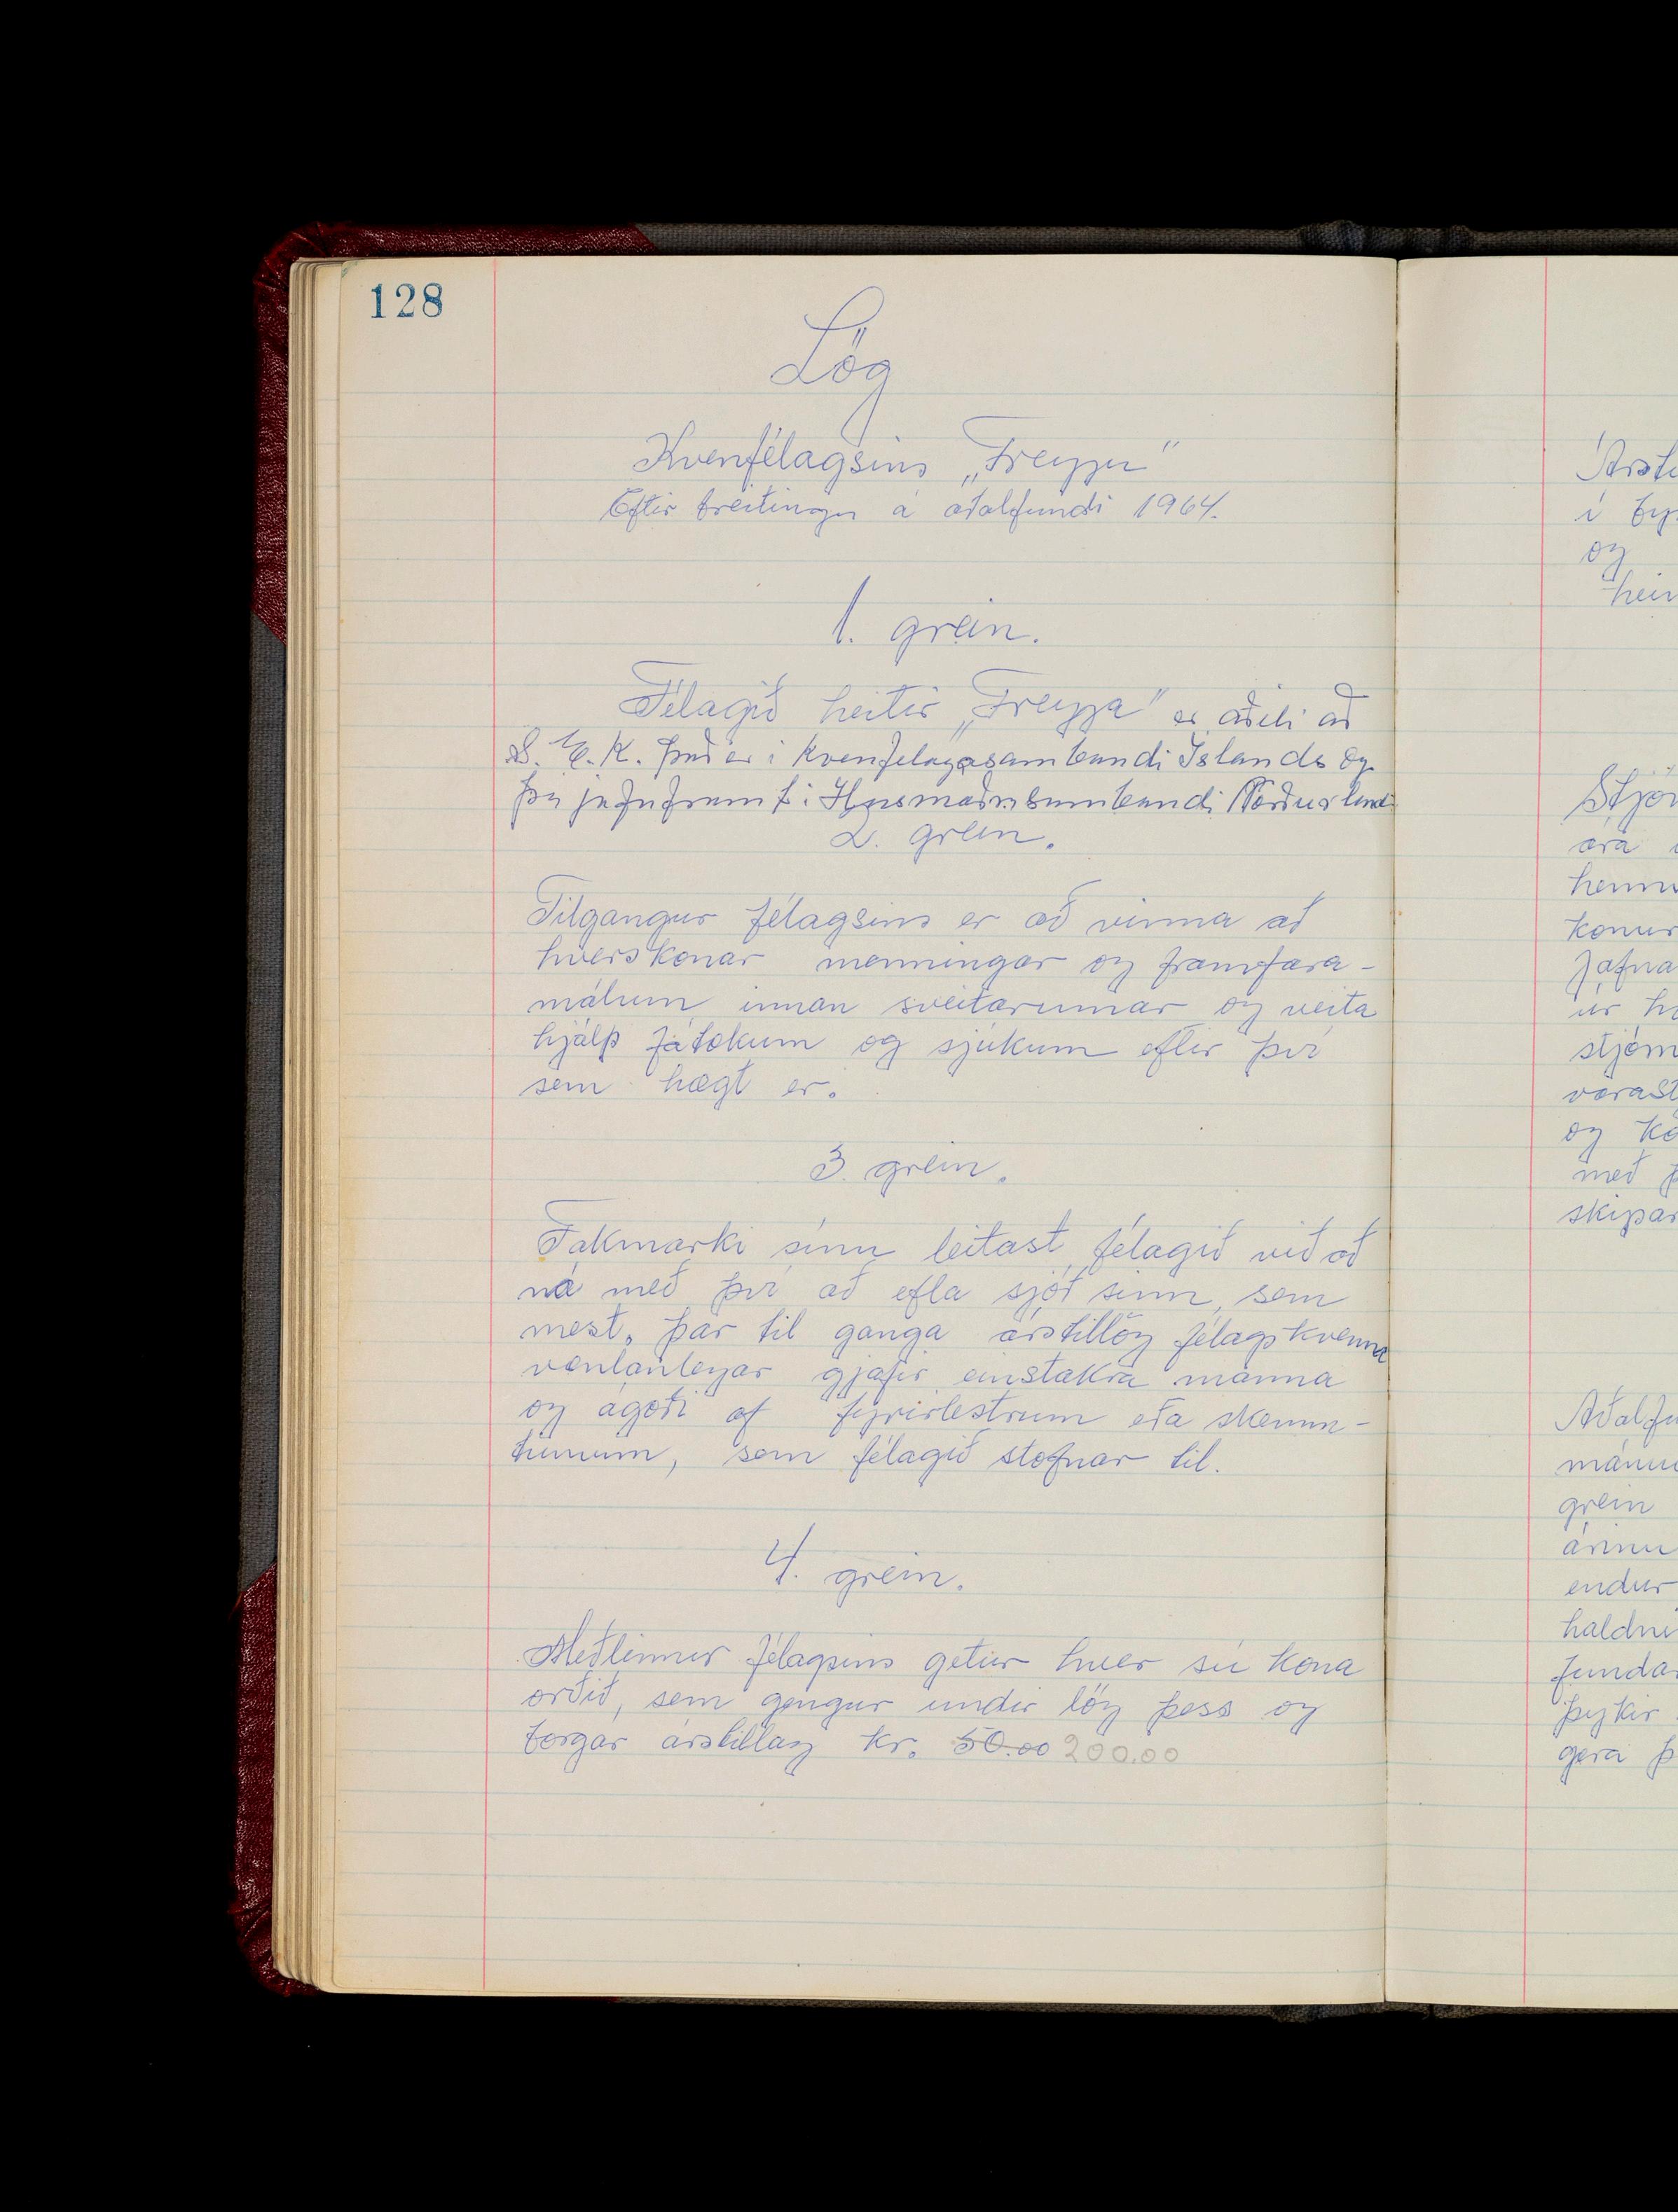 128
Lög
Kvenfélagsins „Freyju"
Eftir breitingu á aðalfundi 1964.
1. grein.
Félagið heitir „Freyja" er aðili að
S. K. Það er í Kvenfelagasambandi Islands og
þá jafnframt í Husmæðrasambandi Norðurlands
2. grein.
Tilgangur félagsins er að vinna að
hverskonar menningar og framfara-
málum innan sveitarinnar og veita
hjálp fátækum og sjúkum eftir því
sem hægt er.
3. grein.
Takmarki sínu leitast félagið við að
ná með því að efla sjóð sinn, sem
mest. Þar til ganga árstillög félagskvenna
væntanlegar gjafir einstakra manna
og ágóði af fyrirlestrum eða skemm-
tunum, sem félagið stofnar til.
4. grein.
Meðlimur félagsins getur hver sú kona
orðið, sem gengur undir lög þess og
borgar árstillag kr. 50.00 200.00
í
og
Stjór
ára
hennu
konur
Jafna
úr
stjórn
varast
og
með
skipar
Aðalfu
mánu
grein
árinu
endur
haldni
funda
þykir
gera þ